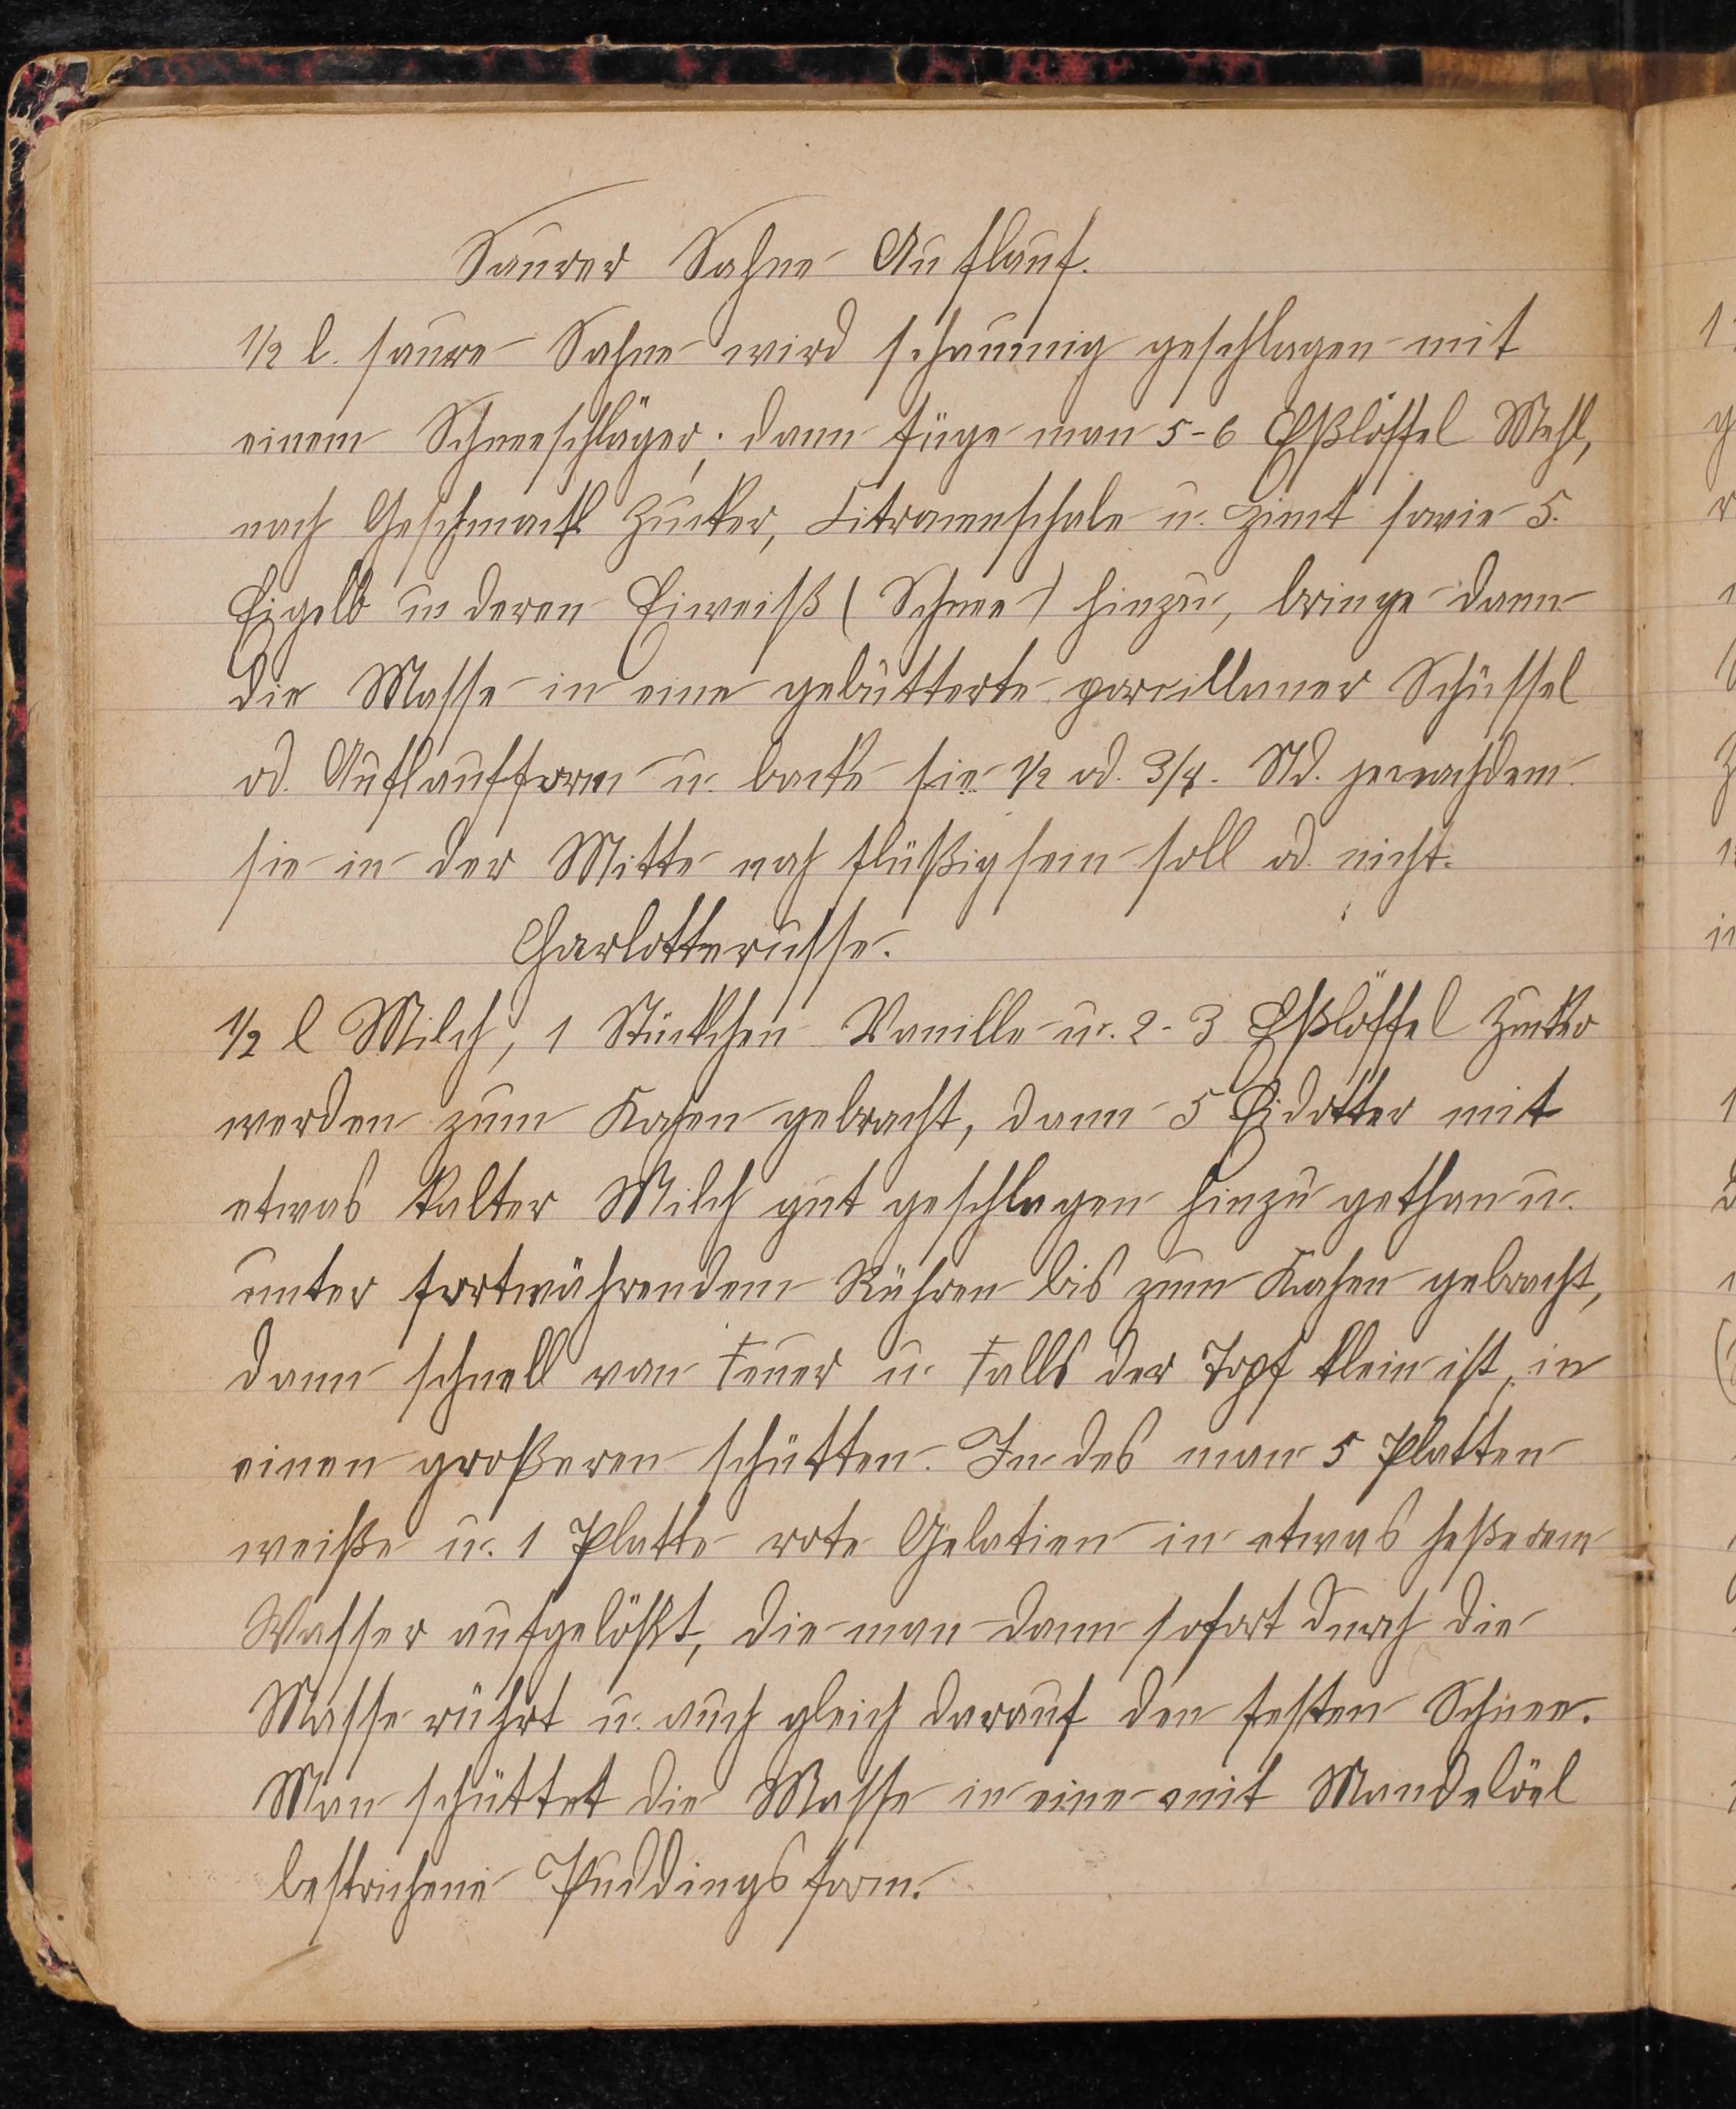 Saurer Sahne Auflauf.
1/2 l. saure Sahne wird schaumig geschlagen mit
einem Schneeschläger; dann füge man 5-6 Eßlöffel Mehl,
nach Geschmack Zucker, Citronenschale u. Zimt sowie 5.
Eigelb u deren Eiweiß (Schnee) hinzu, bringe dann
die Masse in eine gebutterte porcillaner Schüssel
od. Auflaufform u. backe sie 1/2 od. 3/4. Std. jenachdem
sie in der Mitte noch flüßig sein soll od. nicht.
Charlotterusse.
1/2 l Milch, 1 Stückchen Vanille u. 2-3 Eßlöffel Zucker
werden zum Kochen gebracht, dann 5 Eidotter mit
etwas kalter Milch gut geschlagen hinzu gethan u.
unter fortwährendem Rühren bis zum Kochen gebracht,
dann schnell von Feuer u. falls der Topf klein ist, in
einen großeren schütten. In des man 5 Platten
weiße u. 1 Platte rote Gelatien in etwas heßerem
Wasser aufgelößt, die man dann sofort durch die
Masse rührt u. auch gleich darauf den festen Schnee.
Man schüttet die Masse in eine mit Mandelöel
bestrichene Puddingsform.